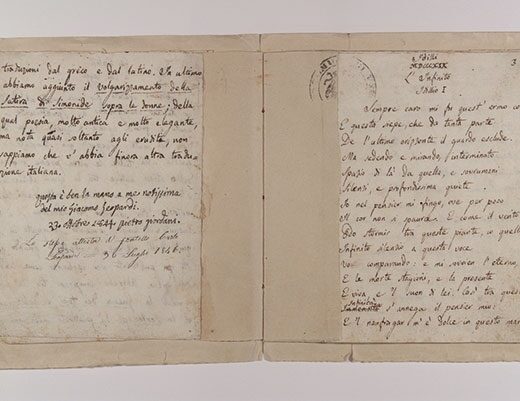 traduzioni dal greco e dal latino. In ultimo
abbiamo aggiunto il volgarizzamento della
Satira di Simonide sopra le donne; della
qual poesia, molto antica e molto elegante
ma nota quasi soltanto agli eruditi, non
sappiamo che v'abbia finora altra tradu-
zione italiana.
questa è ben la mano a me notissima
del mio Giacomo Leopardi.
23. ottobre 1844. pietro giordani.
Lo stesso attesta il
1846.
Idilli
MDCCCXIX
L'Infinito
Idillio I
3
Sempre caro mi fu quest'ermo co
E questa siepe, che da tanta parte
De l'ultimo orizzonte il guardo esclude.
Ma sedendo e mirando, interminato
Spazio di là da quella, e sovrumani
Silenzi, e profondissima quiete
Io nel pensier mi fingo, ove per poco
Il cor non si spaura. E come il vento
Odo stormir tra queste piante, io quello
Infinito silenzio a questa voce
Vo comparando: e mi sovvien l'eterno,
E le morte stagioni, e la presente
E viva, e 'l suon di lei. Così tra questa
Infinitate
Immensità s'annega il pensier mio:
E 'l naufragar m'è dolce in questo mare